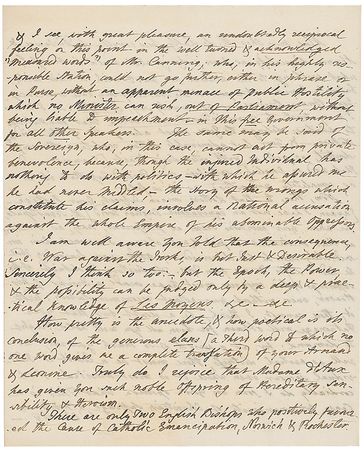 & I see, with great pleasure, an undoubtedly reciprocal
feeling on this point in the well turned & acknowledged
"measured words" of Mr. Canning; who, in his highly res-
ponsible Station, could not go further, either in phrase or
in Pause, without an apparent menace of public Hostility,
which no Minister can wish, out of Parliament, without
being liable to impeachment – in this free Government
for all other Speakers. The same may be said of
the Sovereign, who, in this case, cannot act from private
benevolence, because, though the injured Individual has
nothing to do with politics – with which he assured me
he had never meddled – the story of the wrongs which
constitute his claims, involves a National accusation
against the whole Empire of his abominable Oppressors.
I am well aware you hold that the consequence,
i.e. War against the Turk, is but Just & Desirable.
Sincerely I think so too: – but the Epoch, the Power,
& the possibility can be judged only by a deep & prac-
tical knowledge of Les Moyens. &c – &c
How pretty is the anecdote, & how poetical is its
conclusion, of the generous elans (a third word to which no
one word gives me a complete translation) of your Armand
& Leonine. Truly do I rejoice that Madame
has given you such noble Offspring of Hereditary Sen-
sibility & Heroism.
There are only Two English Bishops who positively favour-
ed the Cause of Catholic Emancipation, Norwich & Rochester.